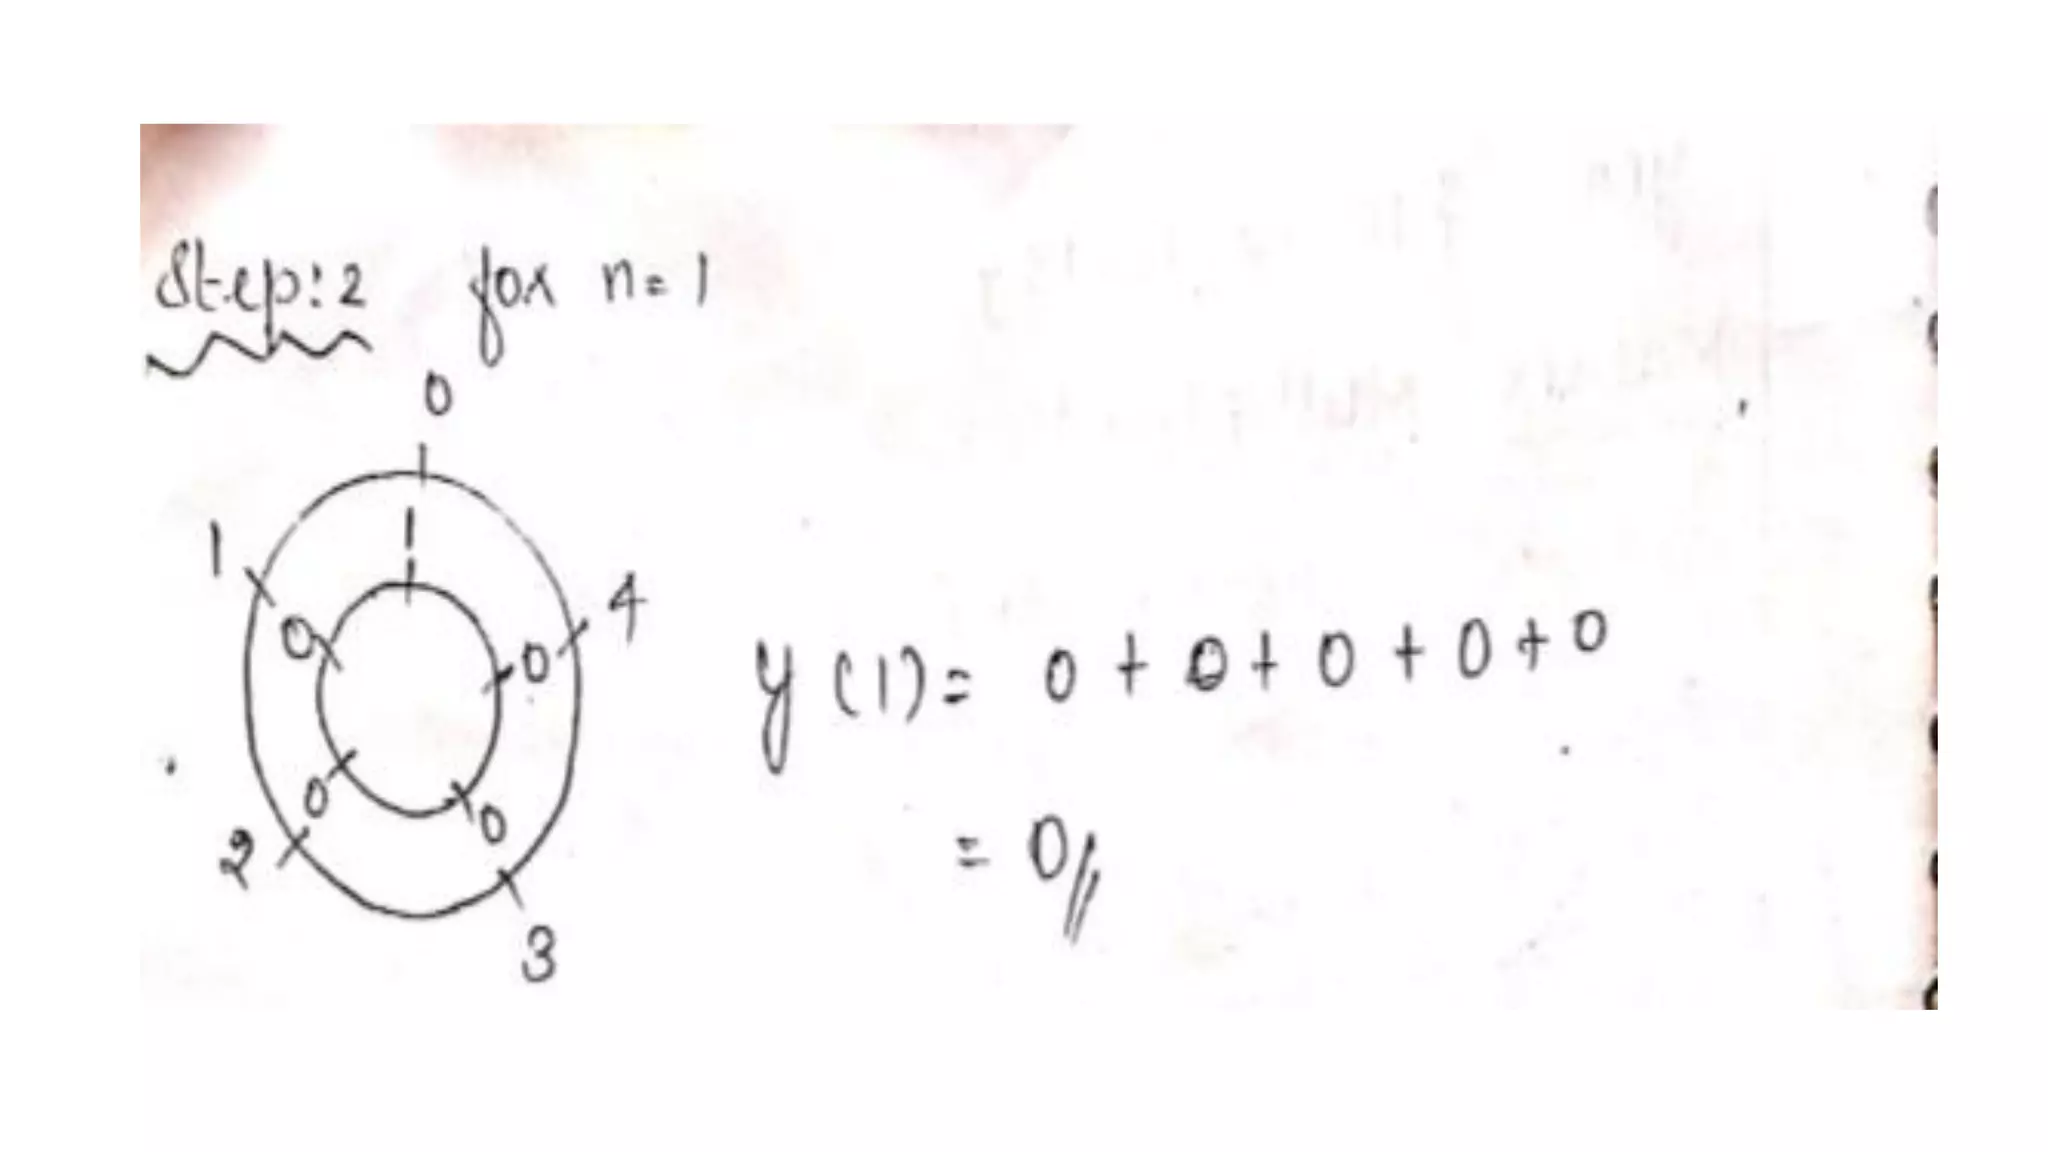 Step:2 for n=1
0
1 1 4
0 0
y(1)= 0 + 0 + 0 + 0 + 0
0 0
= 0//
2 3